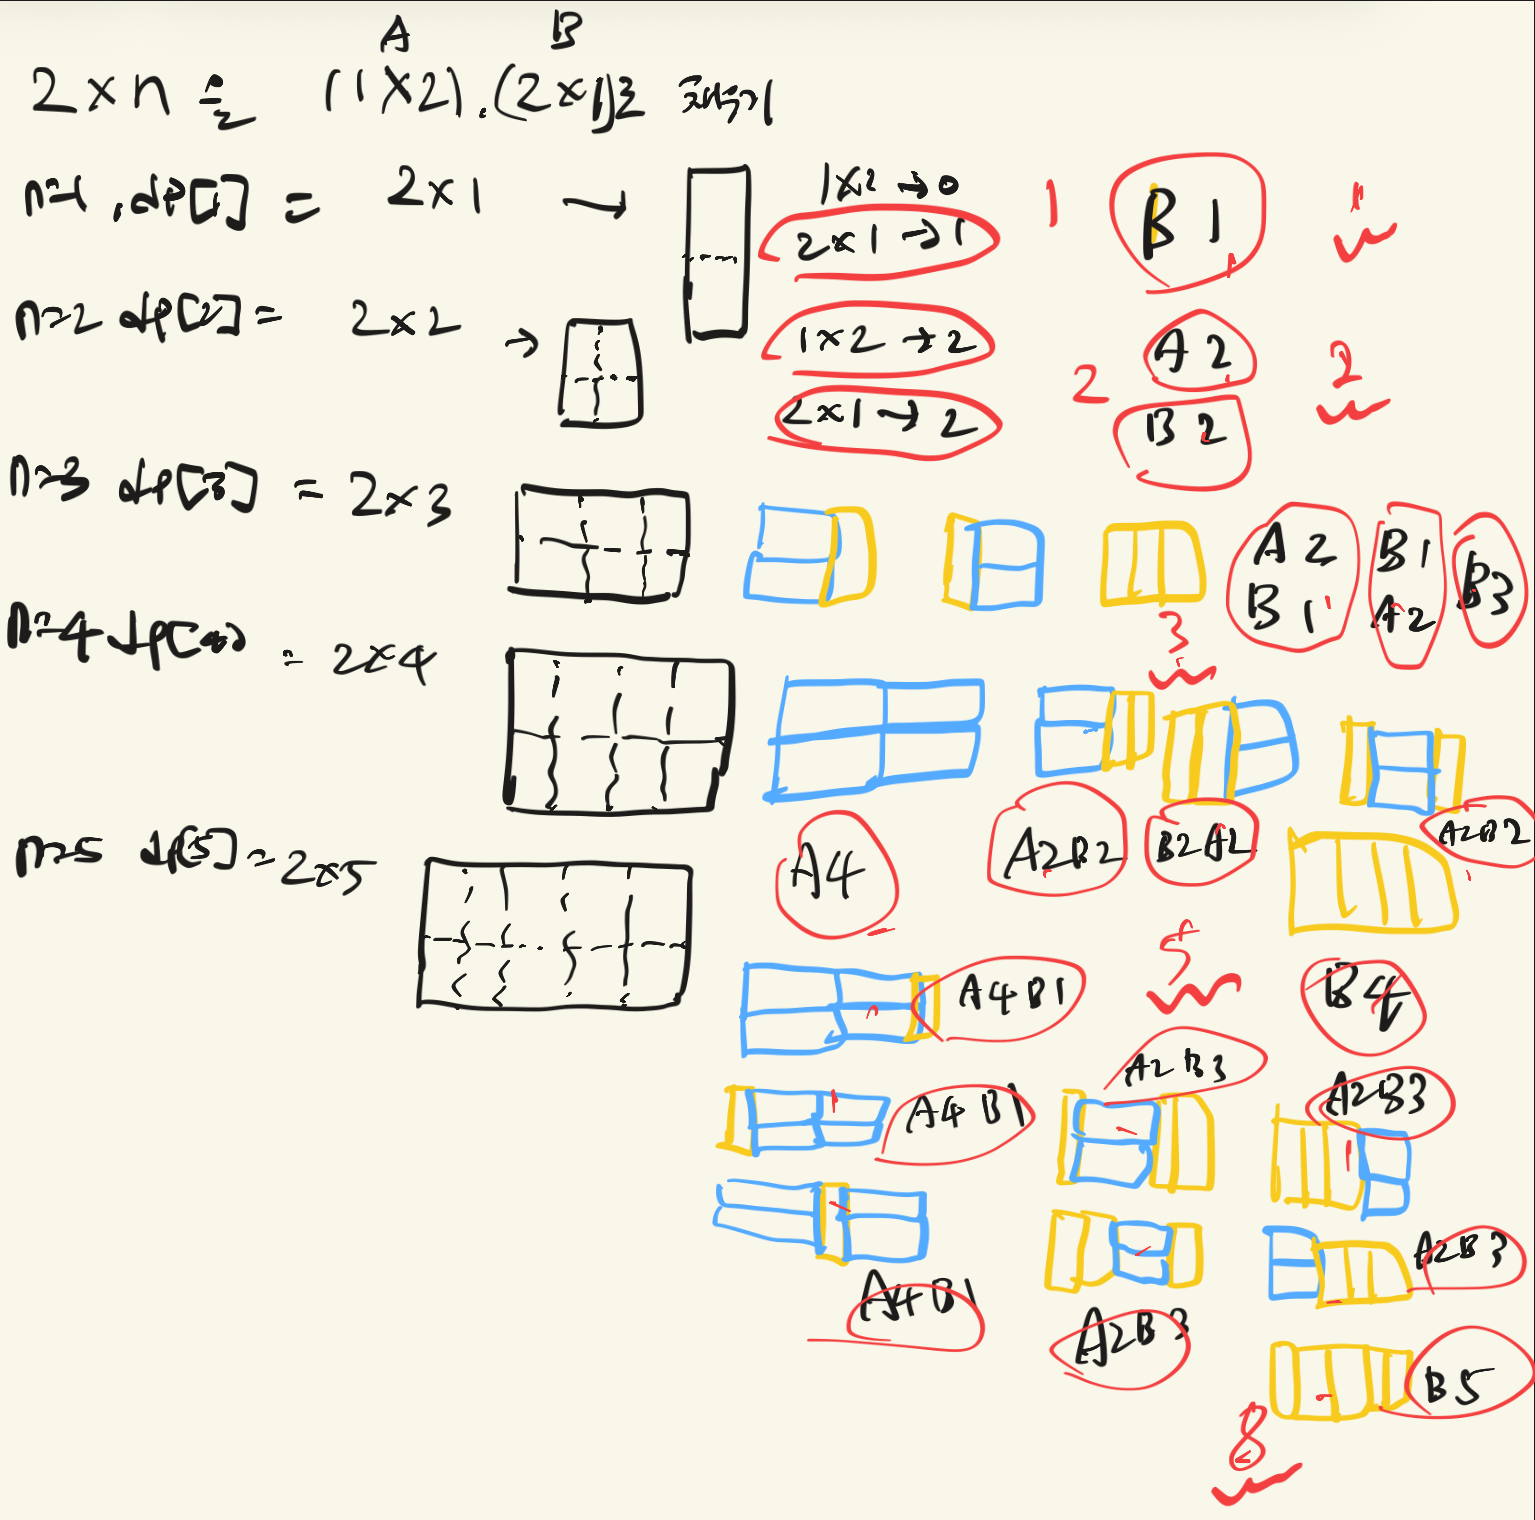 A B
2 x n 를 (1x2).(2x1)로 채우기
n=1 . dp[1] = 2x1 →
1x2 → 0
2x1 → 1
1
B 1
1
n=2 dp[2] = 2x2 →
1x2 → 2
2x1 → 2
2
A 2
B 2
2
n=3 dp[3] = 2x3
A 2
B 1
B 1
A 2
B3
3
n=4 dp[4] = 2x4
A4
A2B2
B2A2
A2B2
B4
5
n=5 dp[5] = 2x5
A4B1
A2B3
A2B3
A4B1
A2B3
A4B1
A2B3
B5
8